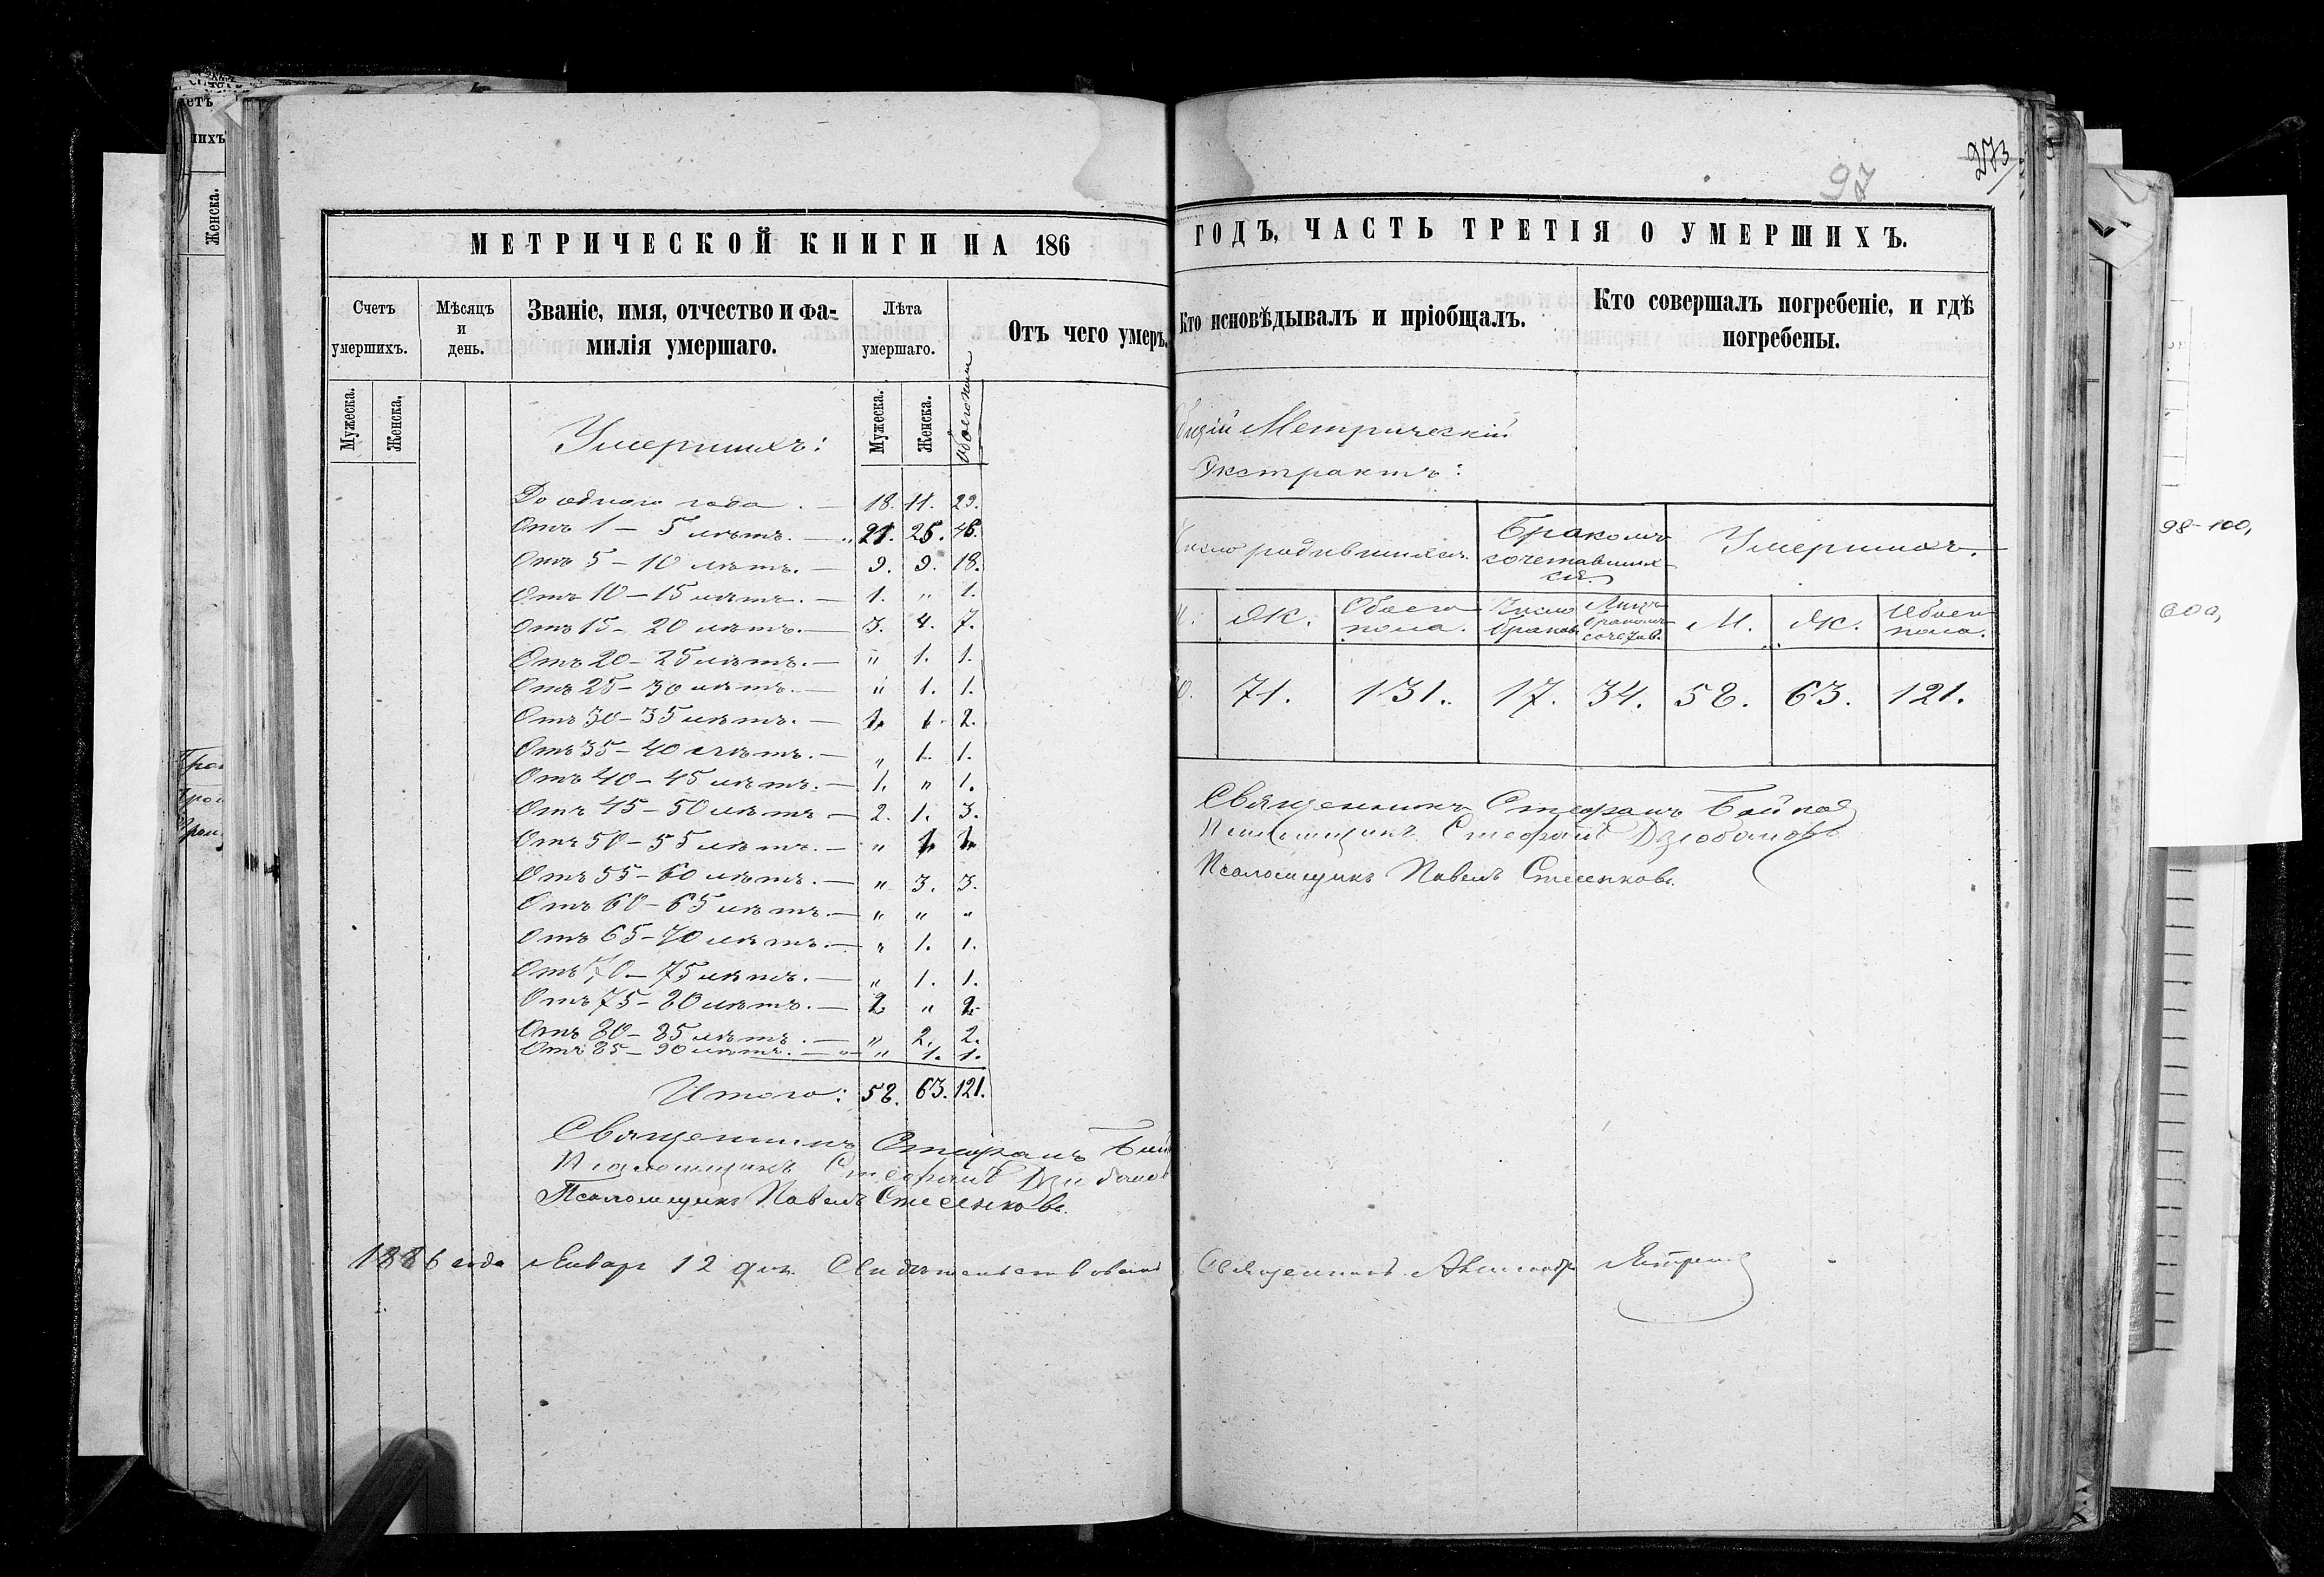 273
97
МЕТРИЧЕСКОЙ КНИГИ НА 186
Счетъ умершихъ.
Мѣсяцъ и день.
Званіе, имя, отчество и фа-
милія умершаго.
Лѣта умершаго.
Отъ чего умеръ.
Мужеска.
Женска.
Мужеска.
Женска.
Обоего пола
Умершихъ:
До одного года . — 18. 11. 29.
Отъ 1 — 5 лѣтъ. — 21. 25. 46.
Отъ 5 — 10 лѣтъ. — 9. 9. 18.
Отъ 10 — 15 лѣтъ. — 1. " 1.
Отъ 15 — 20 лѣтъ. — 3. 4. 7.
Отъ 20 — 25 лѣтъ. — " 1. 1.
Отъ 25 — 30 лѣтъ. — " 1. 1.
Отъ 30 — 35 лѣтъ. — 1. 1. 2.
Отъ 35 — 40 лѣтъ. — " 1. 1.
Отъ 40 — 45 лѣтъ. — 1. " 1.
Отъ 45 — 50 лѣтъ — 2. 1. 3.
Отъ 50 — 55 лѣтъ. — " 1. 1.
Отъ 55 — 60 лѣтъ. — " 3. 3.
Отъ 60 — 65 лѣтъ. — " " "
Отъ 65 — 70 лѣтъ. — " 1. 1.
Отъ 70 — 75 лѣтъ. — " 1. 1.
Отъ 75 — 80 лѣтъ. — 2 " 2.
Отъ 80 — 85 лѣтъ. — " 2. 2.
Отъ 85 — 90 лѣтъ. — " 1. 1.
Итого: 58. 63. 121.
Священникъ Стефанъ
Псаломщикъ Стефанъ
Псаломщикъ Павелъ
1886 года Января 12 дня. Свидѣтельствовалъ
ГОДЪ, ЧАСТЬ ТРЕТІЯ О УМЕРШИХЪ.
Кто исповѣдывалъ и пріобщалъ.
Кто совершалъ погребеніе, и гдѣ
погребены.
Метрическій
Экстрактъ:
родившихся.
Бракомъ
сочетавших-
ся.
Умершихъ.
Ж.
Обоего пола.
Число браковъ
Лицъ бракомъ
М.
Ж.
Обоего пола.
71. 131. 17. 34. 58. 63. 121.
Священникъ Стефанъ
Псаломщикъ Стефанъ
Псаломщикъ Павелъ
Священникъ
98-100,
нихъ
Женска.